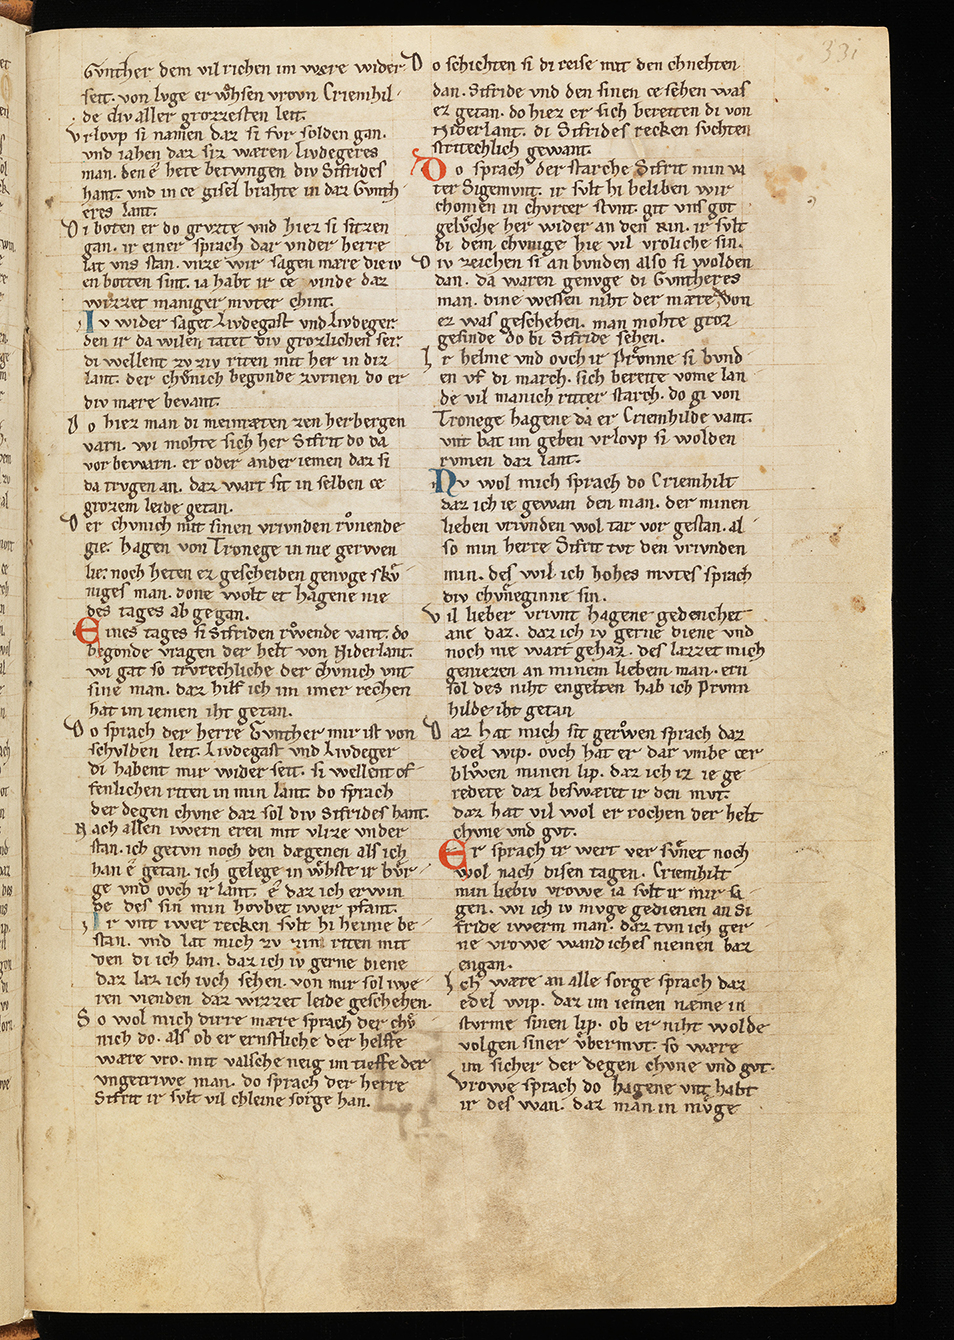 331
Gvnther dem vil richen im wære wider
seit. von lvge erwͦhsen vrovn Criemhil
de div aller grozzesten leit.
Vrlovp si namen daz si fvr solden gan.
vnd iahen daz siz wæren Livdegeres
man. den e hete betwngen div Sifrides
hant. vnd in ce gisel brahte in daz Gvnth
eres lant.
Di boten er do grvzte vnd hiez si sitzen
gan. ir einer sprach dar vnder herre
lat vns stan. vnze wir sagen mære die iv
enboten sint. ia habt ir ce vinde daz
wizzet maniger mvter chint.
Iv wider saget Livdegast vnd Livdeger.
den ir da wilen tatet div grozlichen ser
di wellent zv ziv riten mit her in diz
lant. der chvͦnich begonde zvrnen do er
div mære bevant.
Do hiez man di meinræten zen herbergen
varn. wi mohte sich her Sifrit do da
vor bewarn. er oder ander iemen daz si
da trvgen an. daz wart sit in selben ce
grozem leide getan.
Der chvnich mit sinen vrivnden rvͦnende
gie. hagen von Tronege in nie gerwen
lie. noch heten ez gescheiden genvge skvͦ
niges man. done wolt et hagene nie
des rates abe gegan.
Eines tages si Sifriden rvͦwende vant. do
begonde vragen der helt von Niderlant.
wi gat so trvrechliche der chvnich vnt
sine man. daz hilf ich im imer rechen
hat im iemen iht getan.
Do sprach der herre Gvnther mir ist von
schvlden leit. Livdegast vnd Livdeger
di habent mir wider seit. si wellent of
fenlichen riten in min lant. do sprach
der degen chvne daz sol div Sifrides hant.
Nach allen iwern eren mit vlize vnder
stan. ich getvn noch den dægenen als ich
han e getan. ich gelege in wvͦste ir bvͦr
ge vnd ovch ir lant. e daz ich erwin
de des sin min hovbet iwer pfant.
Ir vnt iwer recken svlt hi heime be
stan. vnd lat mich zv zin riten mit
den di ich han. daz ich iv gerne diene
daz laz ich ivch sehen. von mir sol iwe
ren vienden daz wizzet leide geschehen.
So wol mich dirre mære sprach der chvͦ
nich do. als ob er ernstliche der helffe
wære vro. mit valsche neig im tieffe der
vngetriwe man. do sprach der herre
Sifrit ir svlt vil chleine sorge han.
Do schichten si di reise mit den chnehten
dan. Sifride vnd den sinen ce sehen was
ez getan. do hiez er sich bereiten di von
Niderlant. di Sifrides recken svchten
stritechlich gewant.
Do sprach der starche Sifrit min va
ter Sigemvnt. ir svlt hi beliben wir
chomen in chvrcer stvnt. git vns got
gelvͦche her wider an den Rin. ir svlt
bi dem chvnige hie vil vroliche sin.
Div zeichen si an bvnden also si wolden
dan. da waren genvge di Gvntheres
man. dine wessen niht der mære von
ez was geschehen. man mohte groz
gesinde do bi Sifride sehen.
Ir helme vnd ovch ir prvͦnne si bvnd
en vf di march. sich bereite vome lan
de vil manich ritter starch. do gi von
Tronege hagene da er Criemhilde vant.
vnt bat im geben vrlovp si wolden
rvmen daz lant.
Nv wol mich sprach do Criemhilt
daz ich ie gewan den man. der minen
lieben vrivnden wol tar vor gestan. al
so min herre Sifrit tvt den vrivnden
min. des wil ich hohes mvtes sprach
div chvͦneginne sin.
Vil lieber vrivnt hagene gedenchet
ane daz. daz ich iv gerne diene vnd
noch nie wart gehaz. des lazzet mich
geniezen an minem liebem man. ern
sol des niht engelten hab ich Prvnn
hilde iht getan
Daz hat mich sit gerwͦen sprach daz
edel wip. ovch hat er dar vmbe cer
blvͦwen minen lip. daz ich iz ie ge
redete daz beswæret ir den mvt.
daz hat vil wol er rochen der helt
chvne vnd gvt.
Er sprach ir wert ver svͦnet noch
wol nach disen tagen. Criemhilt
min liebiv vrowe ia svlt ir mir sa
gen. wi ich iv mvge gedienen an Si
fride iwerm man. daz tvn ich ger
ne vrowe wand iches niemen baz
engan.
Ich wære an alle sorge sprach daz
edel wip. daz im iemen næme in
stvrme sinen lip. ob er niht wolde
volgen siner vͦbermvt. so wære
im sicher der degen chvne vnd gvt.
Vrowe sprach do hagene vnt habt
ir des wan. daz man in mvͦge